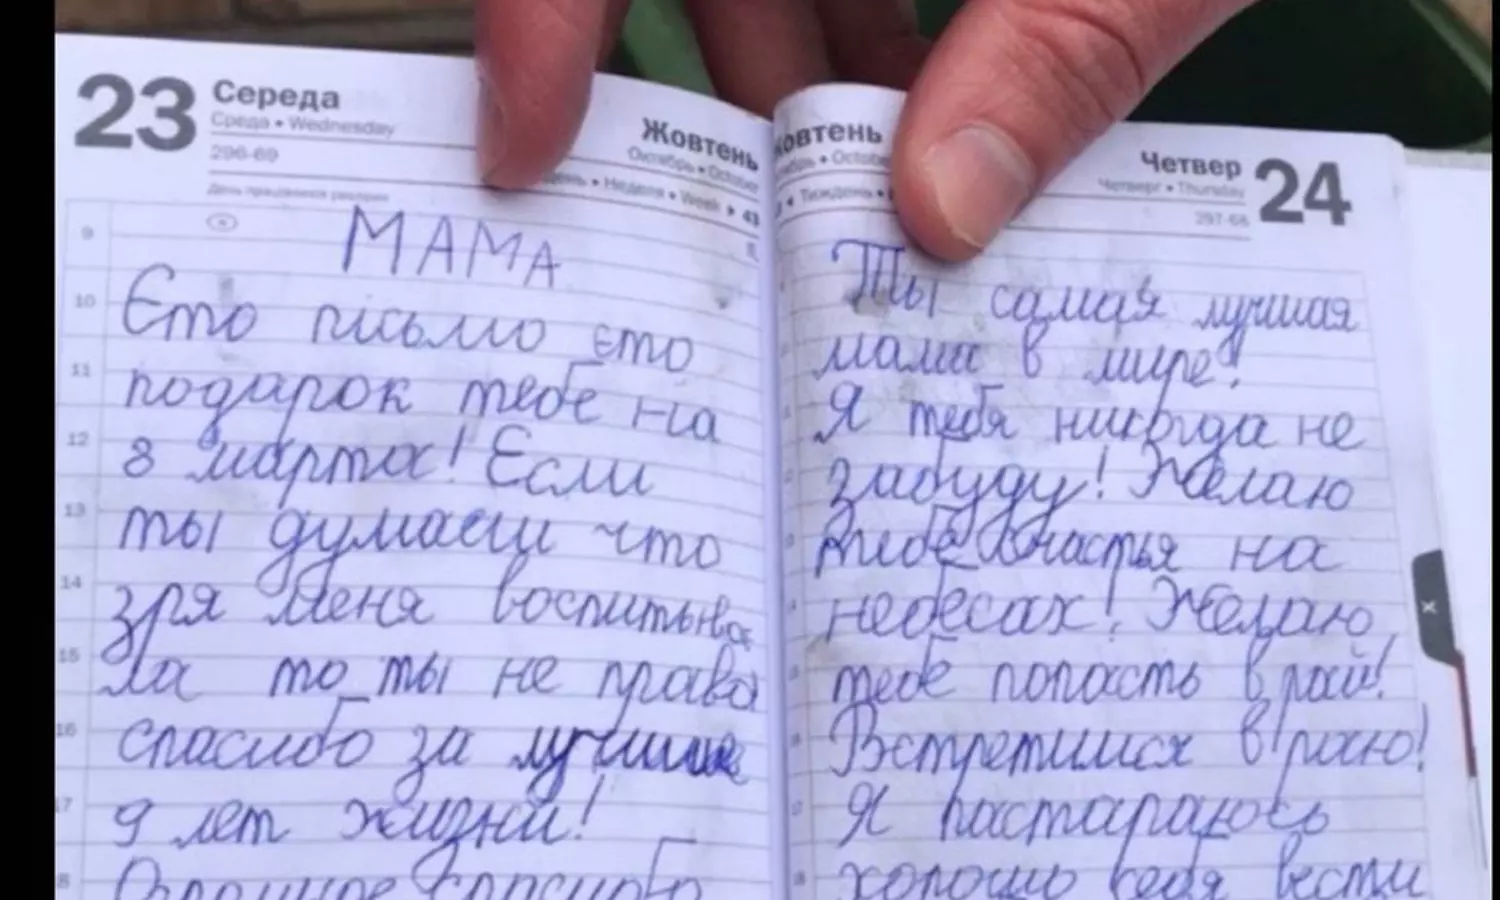 23 Середа
Среда • Wednesday
296-69
Жовтень
Октябрь • October
Неделя • Week • 43
9
МАМА
10
Єто письмо єто
11
подарок тебе на
12
8 марта! Если
13
ты думаєш что
14
зря меня воспитыва
15
ла то ты не права
16
спасибо за лучшие
17
9 лет жизни!
Огромное спасибо
овтень
• October
• Тиждень •
Четвер 24
Четверг • Thursday
297-68
Ты самая лучшая
мама в мире!
Я тебя никогда не
забуду! Желаю
тебе счастья на
небесах! Желаю
тебе попасть в рай!
Встретимся в раю!
Я пастараюсь
хорошо себя вести
X